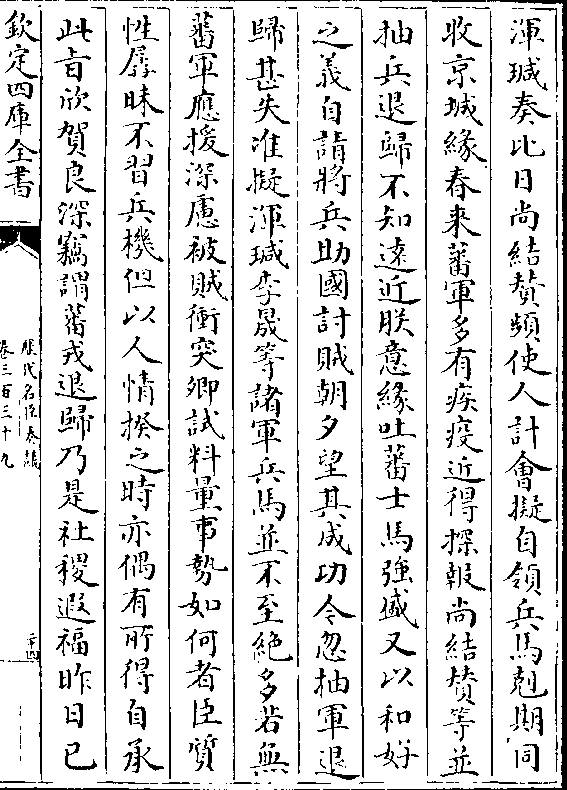 渾瑊奏比日尚結贊頻使人計會擬自領兵馬剋期同
收京城緣春來蕃軍多有疾疫近得探報尚結贊等並
抽兵退歸不知遠近朕意緣吐蕃士馬強盛又以和好
之義自請將兵助國討賊朝夕望其成功今忽抽軍退
歸甚失准擬渾瑊李晟等諸軍兵馬並不至絶多若無
蕃軍應援深慮被賊衝突卿試料量事勢如何者臣質
性孱昧不習兵機但以人情揆之時亦偶有所得自承
此旨欣賀良深竊謂蕃戎退歸乃是社稷遐福昨日已
欽定四庫全書
歷代名臣奏議
卷三百三十九
二十四